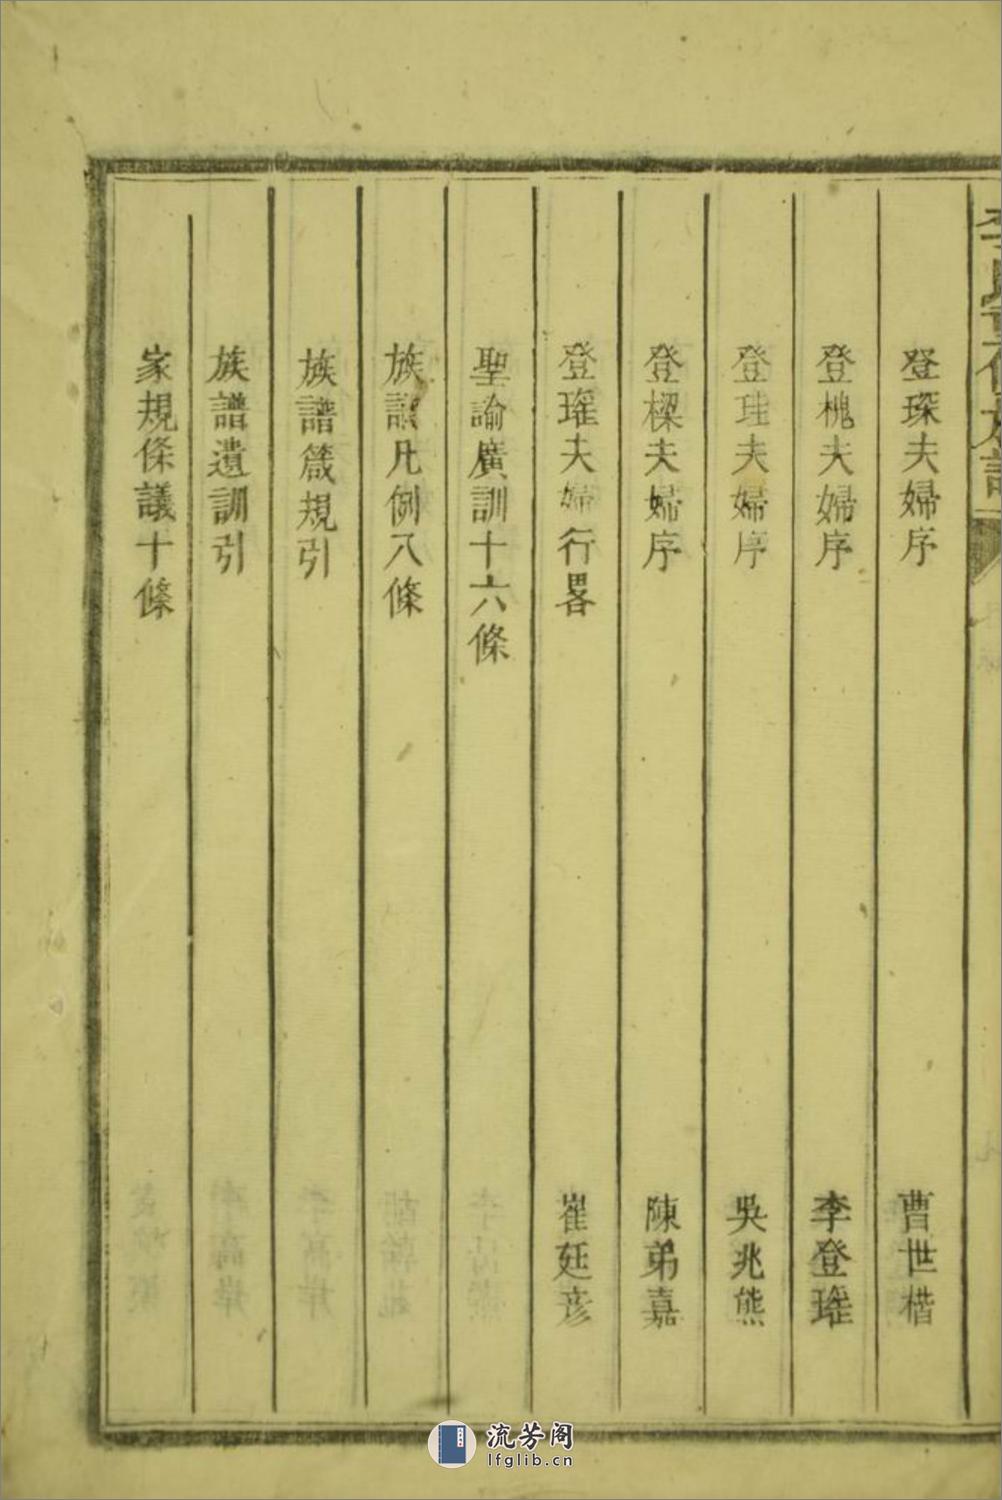 登琛夫婦序 曹世楷
登桃夫婦序 李登瑤
登珪夫婦序 吳兆熊
登樑夫婦序 陳弟嘉
登瑤夫婦行畧 崔廷彦
聖諭廣訓十六條
族譜凡例八條
族譜箴規引
族譜遺訓引
家規條議十條
流芳阁
lfglib.cn